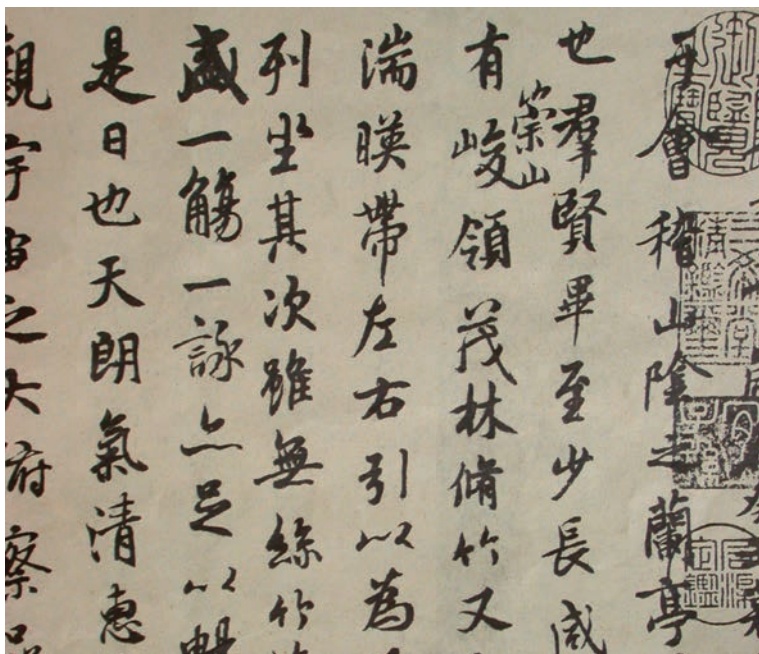 于會稽山陰之蘭亭
也羣賢畢至少長咸
有崇山峻領茂林脩竹又
湍暎帶左右引以為
列坐其次雖無絲竹
盛一觴一詠亦足以暢
是日也天朗氣清惠
觀宇宙之大俯察品
三希堂精鑑璽
宜子孫